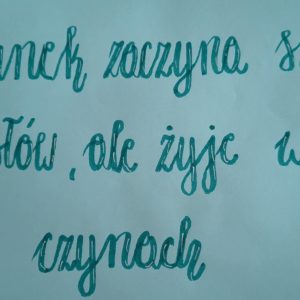 anek zaczyna s
łów, ale żyje w
czynach